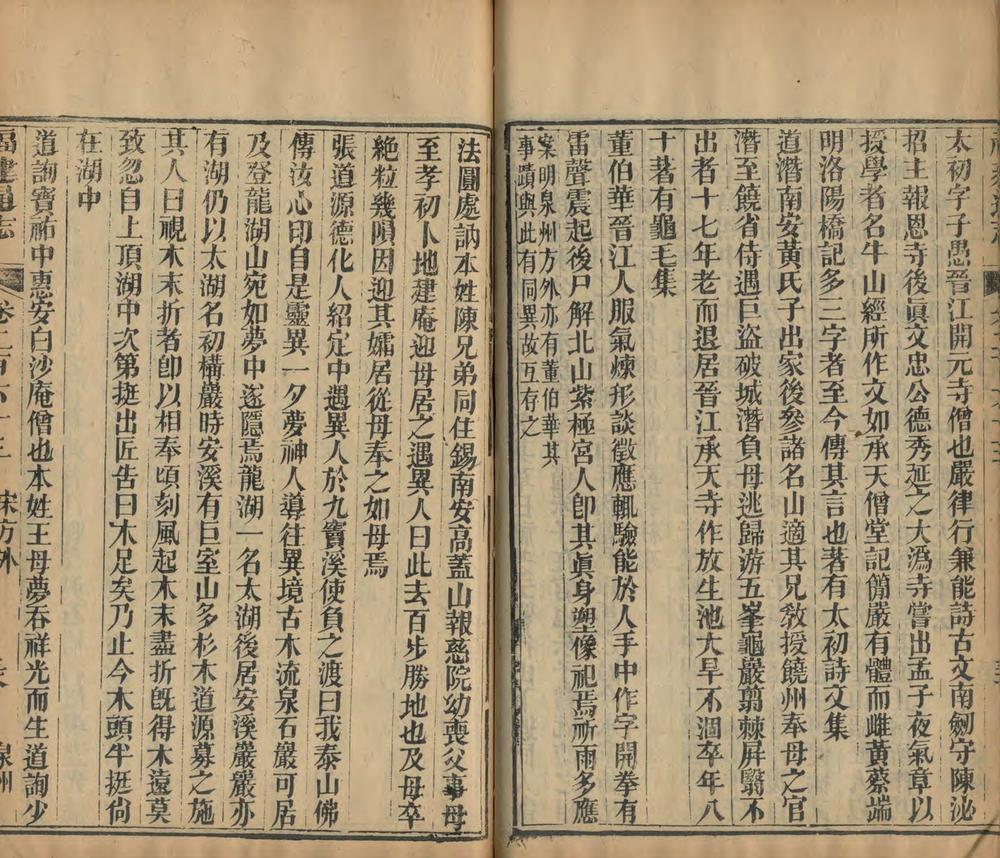 太初字子愚晉江開元寺僧也嚴律行兼能詩古文南劒守陳泌
招主報恩寺後眞文忠公德秀延之大潙寺嘗出孟子夜氣章以
授學者名牛山經所作文如承天僧堂記簡嚴有體而雌黃蔡端
明洛陽橋記多三字者至今傳其言也著有太初詩文集
道潛南安黃氏子出家後參諸名山適其兄敎授饒州奉母之官
潛至饒省侍遇巨盜破城潛負母逃歸游五峯龜巖翦棘屏翳不
出者十七年老而退居晉江承天寺作放生池大旱不涸卒年八
十著有龜毛集
董伯華晉江人服氣煉形談徵應輒驗能於人手中作字開拳有
雷聲震起後尸解北山紫極宮人卽其眞身塑像祀焉祈雨多應
案明泉州方外亦有董伯華其
事蹟與此有同異故互存之
法圓處訥本姓陳兄弟同住錫南安高蓋山報慈院幼喪父事母
至孝初卜地建庵迎母居之遇異人曰此去百步勝地也及母卒
絶粒幾隕因迎其孀居從母奉之如母焉
張道源德化人紹定中遇異人於九寶溪使負之渡曰我泰山佛
傳汝心印自是靈異一夕夢神人導往異境古木流泉石巖可居
及登龍湖山宛如夢中遂隱焉龍湖一名太湖後居安溪巖巖亦
有湖仍以太湖名初構巖時安溪有巨室山多杉木道源募之施
其人曰視木末折者卽以相奉頃刻風起木末盡折旣得木遠莫
致忽自上頂湖中次第挺出匠吿曰木足矣乃止今木頭半挺尙
在湖中
道詢寶祐中惠安白沙庵僧也本姓王母夢吞祥光而生道詢少
福建通志 卷二百六十三 宋方外 泉州